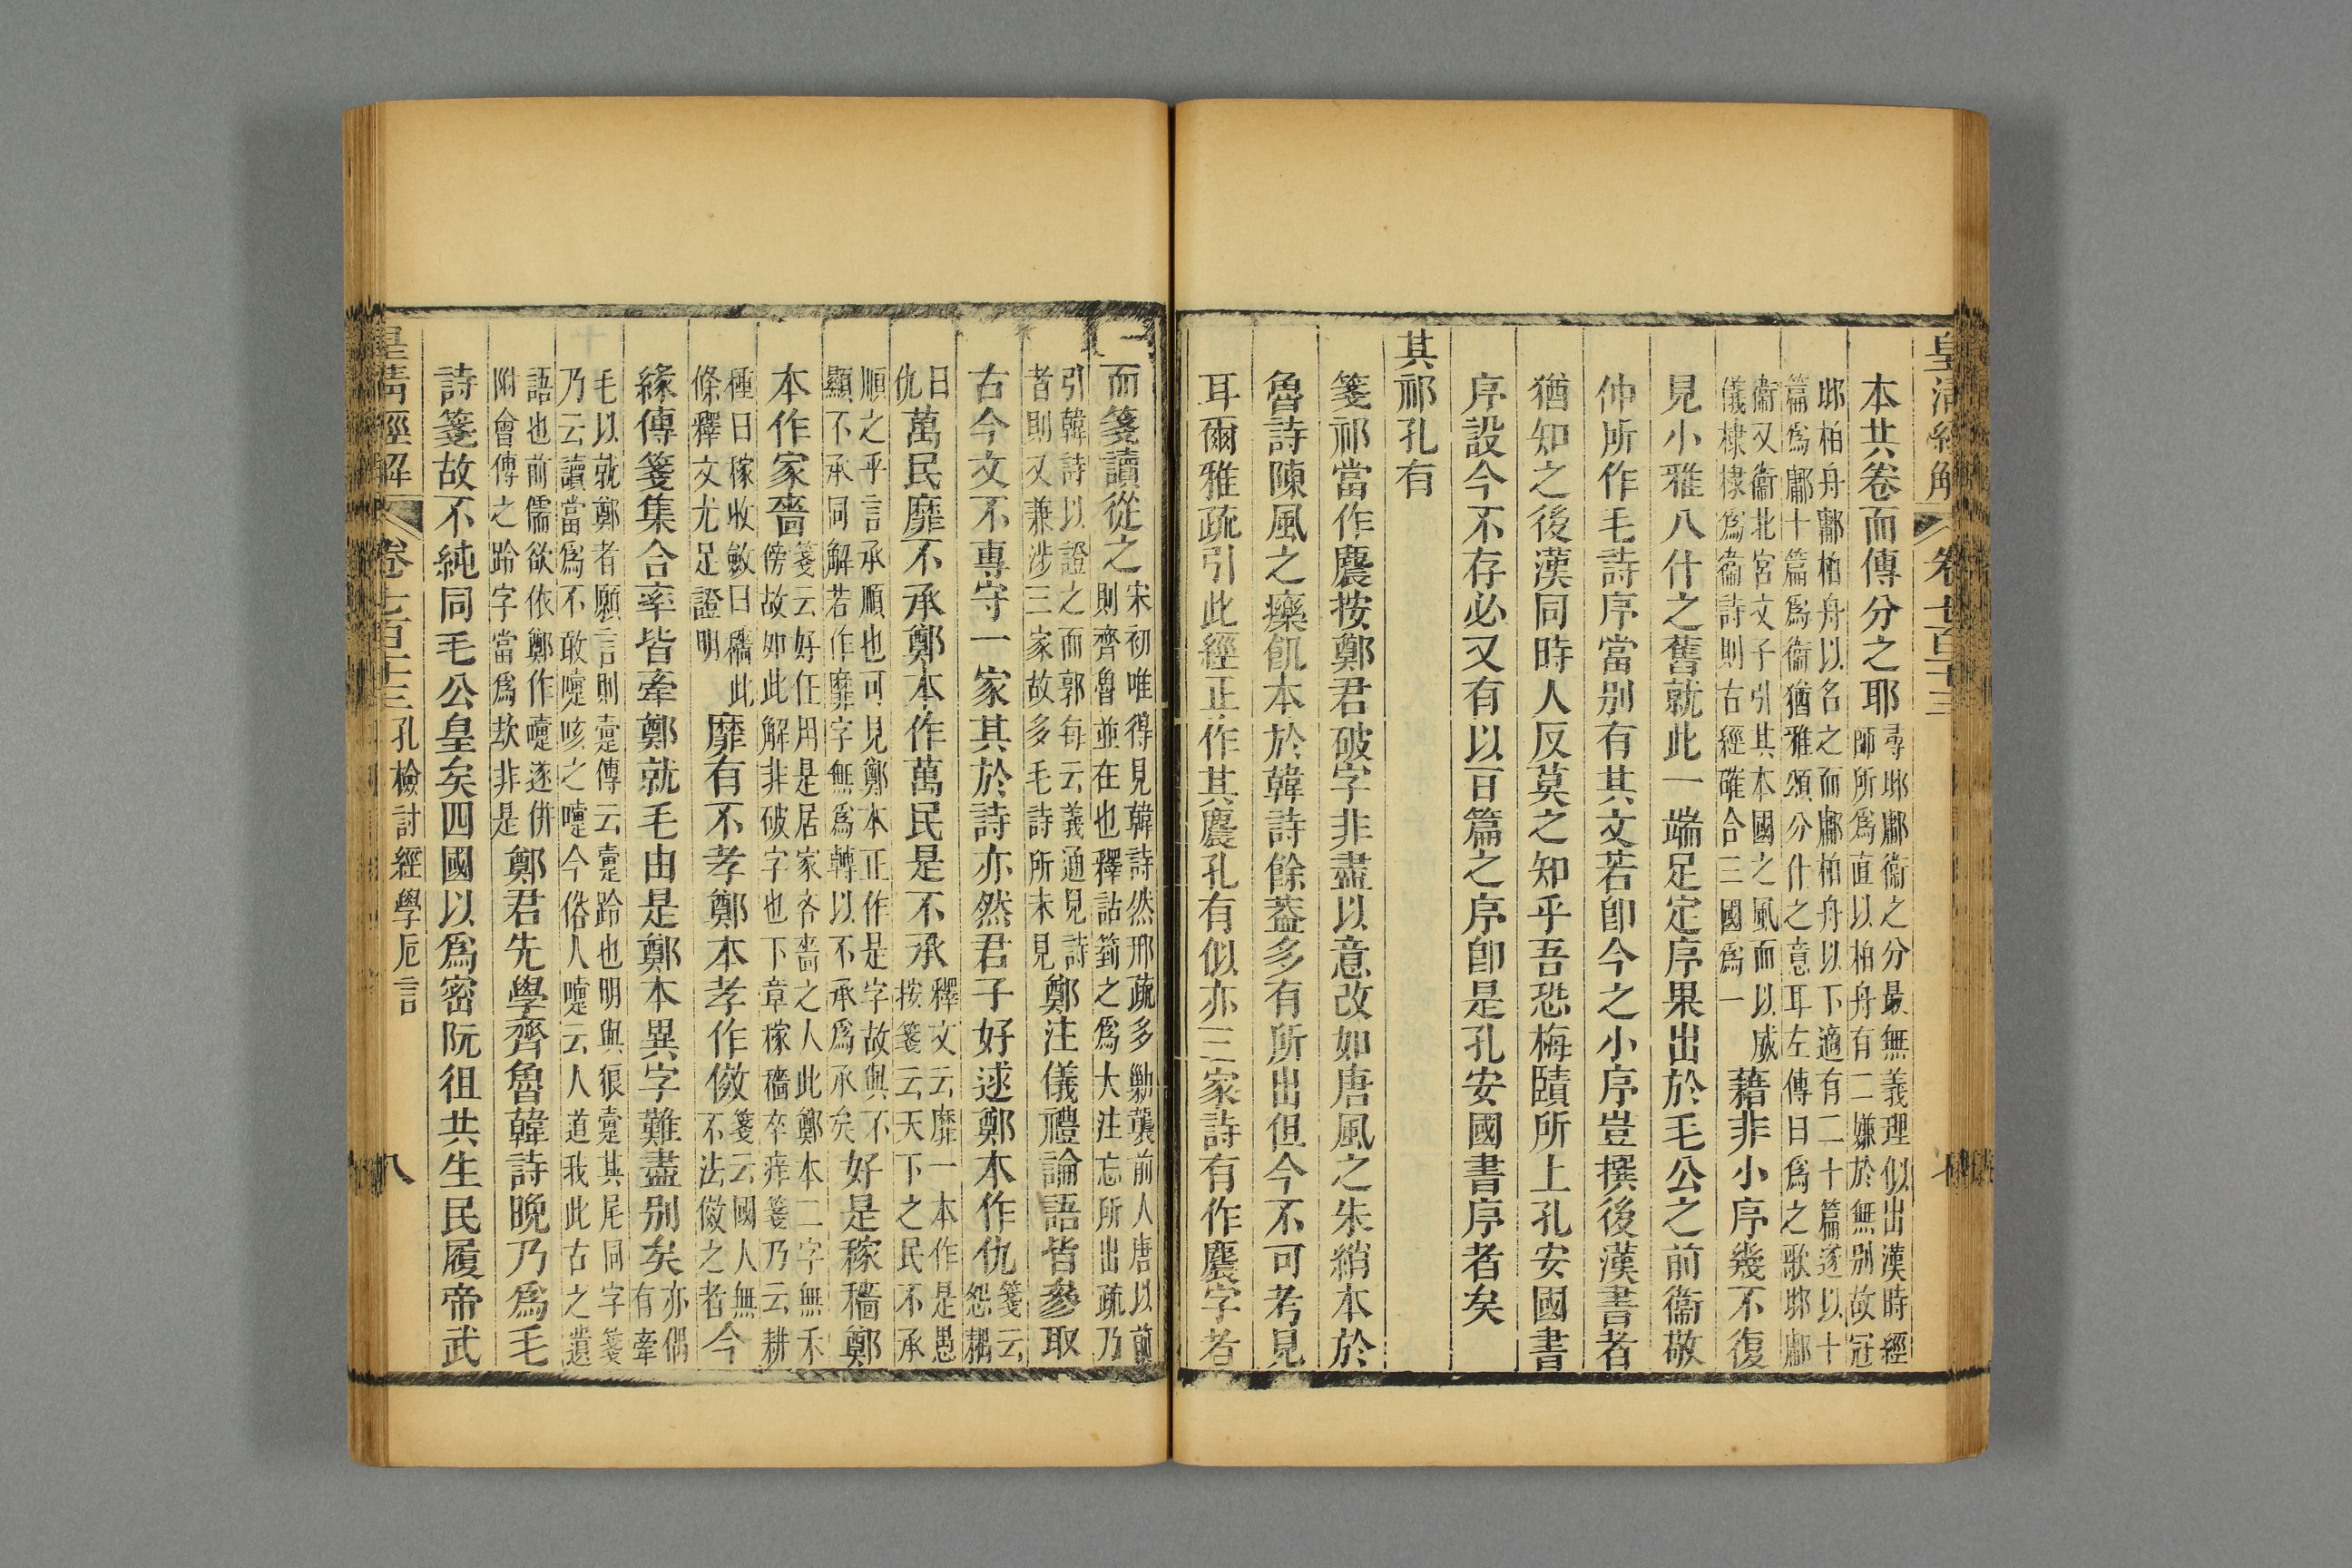 皇清經解
卷七百十三
本共卷而傳分之耶尋邶鄘衞之分最無義理似出漢時經
師所爲直以柏舟有二嫌於無别故冠
邶柏舟鄘柏舟以名之而鄘柏舟以下適有二十篇遂以十
篇爲鄘十篇爲衞猶雅頌分什之意耳左傳曰爲之歌邶鄘
衞又衞北宮文子引其本國之風而以威
儀棣棣爲衞詩則古經確合三國爲一
藉非小序幾不復
見小雅八什之舊就此一端足定序果出於毛公之前衞敬
仲所作毛詩序當别有其文若卽今之小序豈撰後漢書者
猶知之後漢同時人反莫之知乎吾恐梅賾所上孔安國書
序設今不存必又有以百篇之序卽是孔安國書序者矣
其祁孔有
箋祁當作麎按鄭君破字非盡以意改如唐風之朱綃本於
魯詩陳風之𤻲飢本於韓詩餘葢多有所出但今不可考見
耳爾雅疏引此經正作其麎孔有似亦三家詩有作麎字者
而箋讀從之宋初唯得見韓詩然邢疏多勦襲前人唐以前
則齊魯並在也釋詁箌之爲大注忘所出疏乃
引韓詩以證之而郭每云義通見詩
者則又兼涉三家故多毛詩所未見
鄭注儀禮論語皆參取
古今文不專守一家其於詩亦然君子好逑鄭本作仇箋云
怨耦
曰
仇
萬民靡不承鄭本作萬民是不承釋文云靡一本作是愚
按箋云天下之民不承
順之乎言承順也可見鄭本正作是字故與不
顯不承同解若作靡字無爲轉以不承爲承矣
好是稼穡鄭
本作家嗇箋云好任用是居家吝嗇之人此鄭本二字無禾
傍故如此解非破字也下章稼穡卒痒箋乃云耕
種曰稼收斂曰穡此
條釋文尤足證明
靡有不孝鄭本孝作傚箋云國人無
不法傚之者
今
緣傳箋集合率皆牽鄭就毛由是鄭本異字難盡别矣亦偶
有牽
毛以就鄭者願言則疐傳云疐跲也明與狼疐其尾同字箋
乃云讀當爲不敢嚏咳之嚏今俗人嚏云人道我此古之遺
語也前儒欲依鄭作嚏遂併
附會傳之跲字當爲㰦非是
鄭君先學齊魯韓詩晚乃爲毛
詩箋故不純同毛公皇矣四國以爲密阮徂共生民履帝武
皇清經解
卷七百十三
孔檢討經學卮言
八